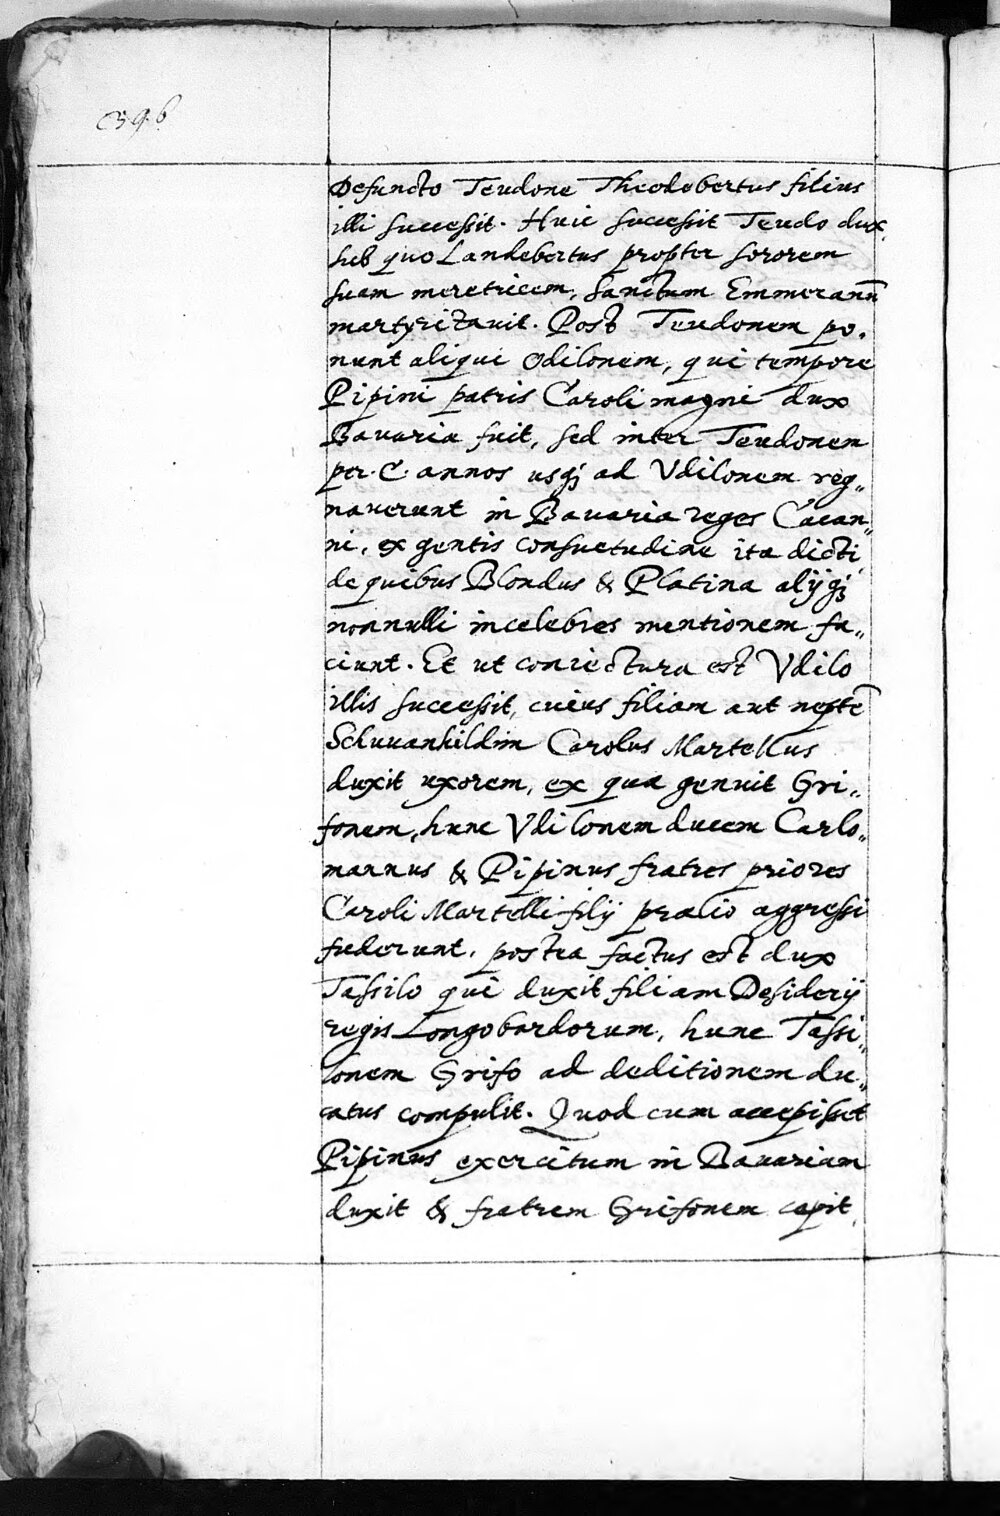 396
Defuncto Teudone Theodobertus filius
illi successit. Huic successit Teudo dux
sub quo Landebertus propter sororem
suam meretricem, sanctum Emmeranū
martyrizauit. Post Teudonem po,
nunt aliqui Odilonem, qui tempore
Pipini patris Caroli magni dux
Bauaria fuit, sed inter Teudonem
per .C. annos usq; ad Vdilonem reg„
nauerunt in Bauaria reges Cacan„
ni, ex gentis consuetudine ita dicti
de quibus Blondus & Platina alijq;
nonnulli incelebres mentionem fa„
ciunt. Et ut coniectura est Vdilo
illis successit, cuius filiam aut neptē
Schuuanhildim Carolus Martellus
duxit uxorem, ex qua genuit Gri„
fonem, hunc Vdilonem ducem Carlo„
mannus & Pipinus fratres priores
Caroli Martelli filij pralio aggressi
fuderunt. postea factus est dux
Tassilo qui duxit filiam Desiderij
regis Longobardorum, hunc Tassi„
lonem Grifo ad deditionem du„
catus compulit. Quod cum accepisset
Pipinus exercitum in Bauariam
duxit & fratrem Grifonem capit